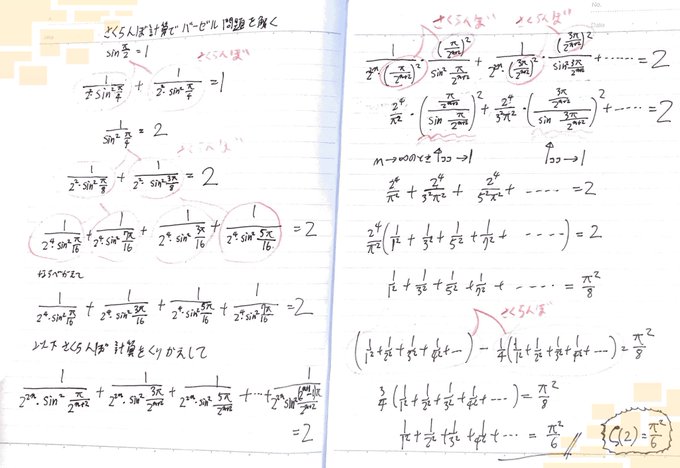 さくらんぼ計算でバーゼル問題を解く
sin π/2 = 1
さくらんぼ
1/(2²·sin² π/4) + 1/(2²·sin² π/4) = 1
1/(sin² π/4) = 2
さくらんぼ
1/(2²·sin² π/8) + 1/(2²·sin² 3π/8) = 2
1/(2⁴·sin² π/16) + 1/(2⁴·sin² 7π/16) + 1/(2⁴·sin² 3π/16) + 1/(2⁴·sin² 5π/16) = 2
ならべかえて
1/(2⁴·sin² π/16) + 1/(2⁴·sin² 3π/16) + 1/(2⁴·sin² 5π/16) + 1/(2⁴·sin² 7π/16) = 2
以下さくらんぼ計算をくりかえして
1/(2²ⁿ·sin² π/2ⁿ⁺²) + 1/(2²ⁿ·sin² 3π/2ⁿ⁺²) + 1/(2²ⁿ·sin² 5π/2ⁿ⁺²) + ··· +
= 2
No.
Date
さくらんぼ さくらんぼ
1/(2²ⁿ·(π/2ⁿ⁺²)²) · (π/2ⁿ⁺²)²/(sin² π/2ⁿ⁺²) + 1/(2²ⁿ·(3π/2ⁿ⁺²)²) · (3π/2ⁿ⁺²)²/(sin² 3π/2ⁿ⁺²) + ······ = 2
2⁴/π² · ((π/2ⁿ⁺²)/(sin π/2ⁿ⁺²))² + 2⁴/(3²π²) · ((3π/2ⁿ⁺²)/(sin 3π/2ⁿ⁺²))² + ······ = 2
n→∞のとき ↑ココ→1 ↑ココ→1
2⁴/π² + 2⁴/(3²π²) + 2⁴/(5²π²) + ····· = 2
2⁴/π² (1/1² + 1/3² + 1/5² + 1/7² + ·····) = 2
1/1² + 1/3² + 1/5² + 1/7² + ····· = π²/8
さくらんぼ
(1/1² + 1/2² + 1/3² + 1/4² + ···) − 1/4 (1/1² + 1/2² + 1/3² + 1/4² + ···) = π²/8
3/4 (1/1² + 1/2² + 1/3² + 1/4² + ···) = π²/8
1/1² + 1/2² + 1/3² + 1/4² + ··· = π²/6
ζ(2) = π²/6